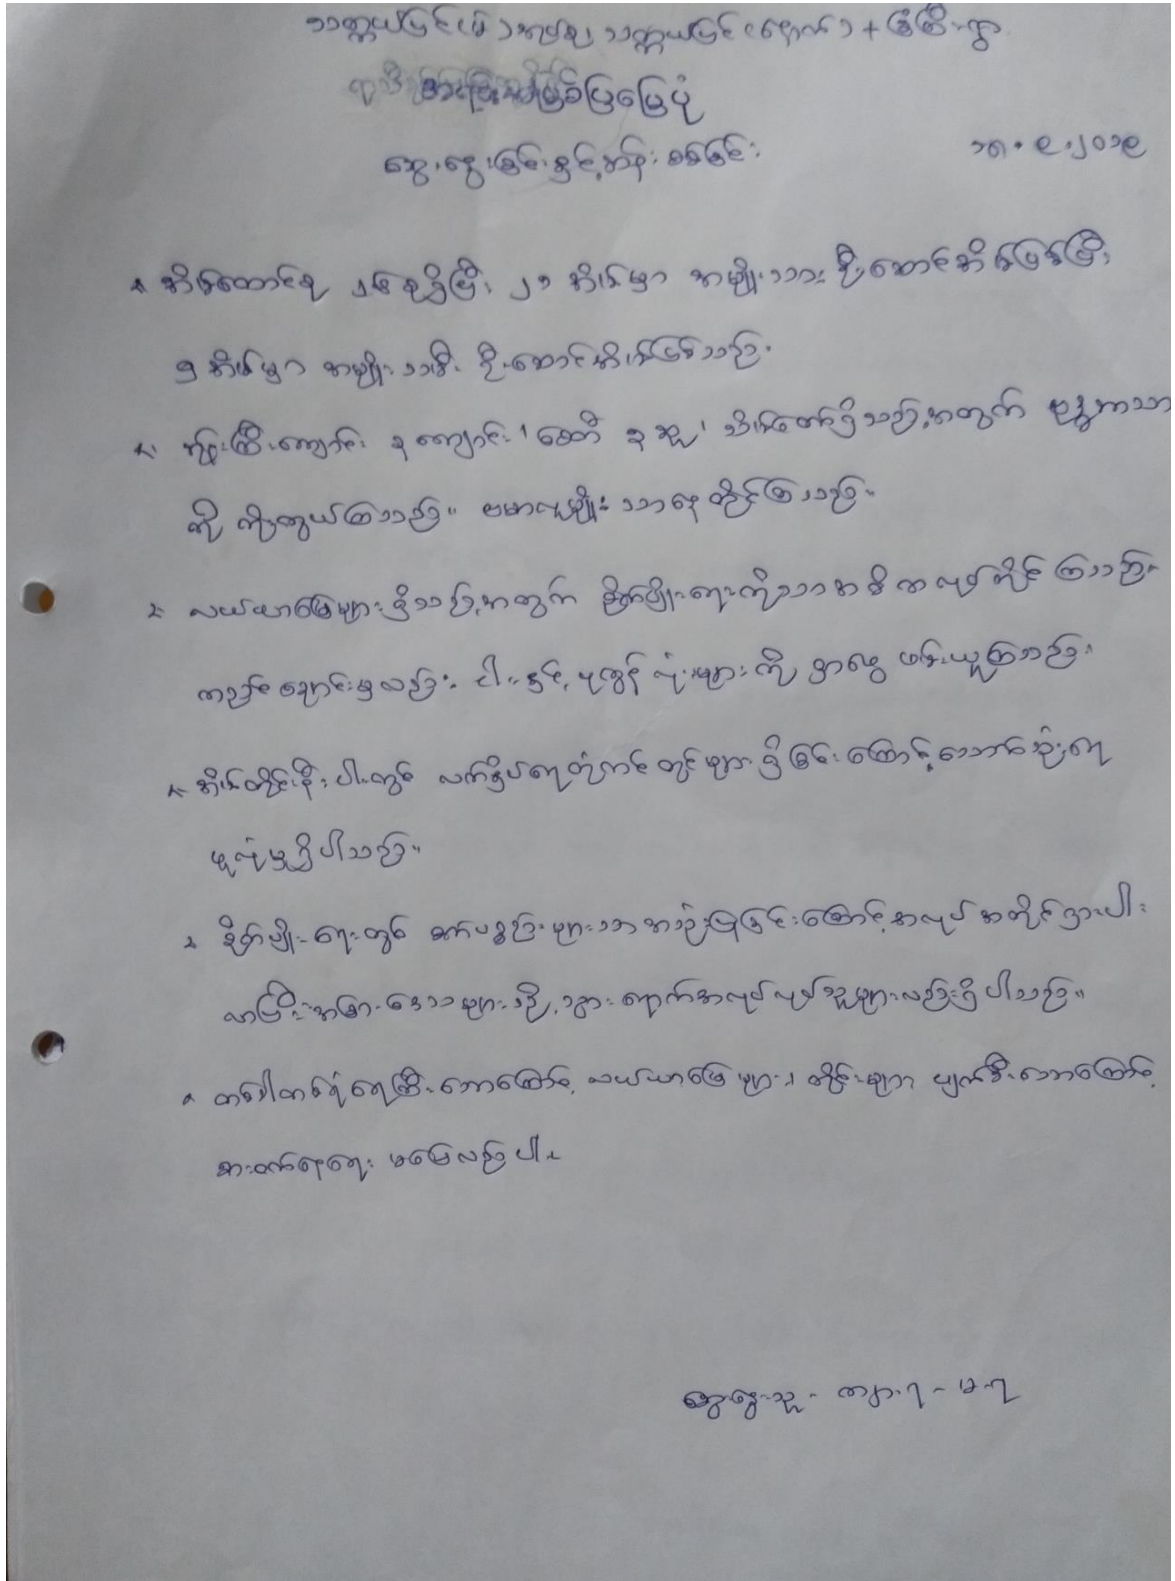 သတ္တယ်မြင် ( မ ) အုပ်စု၊ သတ္တယ်မြင် ( နောက် ) + ခြံကြီးရွာ
ပြမြေပုံ
ဆွေးနွေးခြင်းနှင့်ဆန်းစစ်ခြင်း
၁၈.၉.၂၀၁၉
အိမ်ထောင်စု ၂၆ စုရှိပြီး ၂၁ အိမ်မှာ အမျိုးသား ဦးဆောင်အိမ်ဖြစ်ပြီး
၅ အိမ်မှာ အမျိုးသမီး ဦးဆောင်အိမ်ဖြစ်သည်။
ဘုန်းကြီးကျောင်း ၃ ကျောင်း၊ စေတီ ၃ ဆူ၊ သိမ်တော်ရှိသည့်အတွက် ဗုဒ္ဓဘာသာ
ကို ကိုးကွယ်ကြသည်။ ဗမာလူမျိုးသာ နေထိုင်ကြသည်။
လယ်ယာမြေများရှိသည့်အတွက် စိုက်ပျိုးရေးကိုသာ အဓိကလုပ်ကိုင်ကြသည်။
ချောင်းမှလည်း ငါးနှင့် ပုစွန်လုံးများကို ရှာဖွေ ဖမ်းယူကြသည်။
အိမ်တိုင်းနီးပါးတွင် လက်နှိပ်ရေတုံကင်တွင်းများရှိခြင်းကြောင့် သောက်သုံးရေ
ဖူလုံမှုရှိပါသည်။
စိုက်ပျိုးရေးတွင် စက်ပစ္စည်းများသာ အသုံးပြုခြင်းကြောင့် အလုပ်အကိုင်ရှားပါး
လာပြီး အခြားဒေသများသို့ သွားရောက်အလုပ်လုပ်သူများလည်းရှိပါသည်။
တစ်ခါတစ်ရံရေကြီးသောကြောင့် လယ်ယာမြေများ၊ ပျက်စီးသောကြောင့်
စားဝတ်နေရေး မပြေလည်ပါ။
ဆွေးနွေးသူ - ကျား ၇ - မ ၇